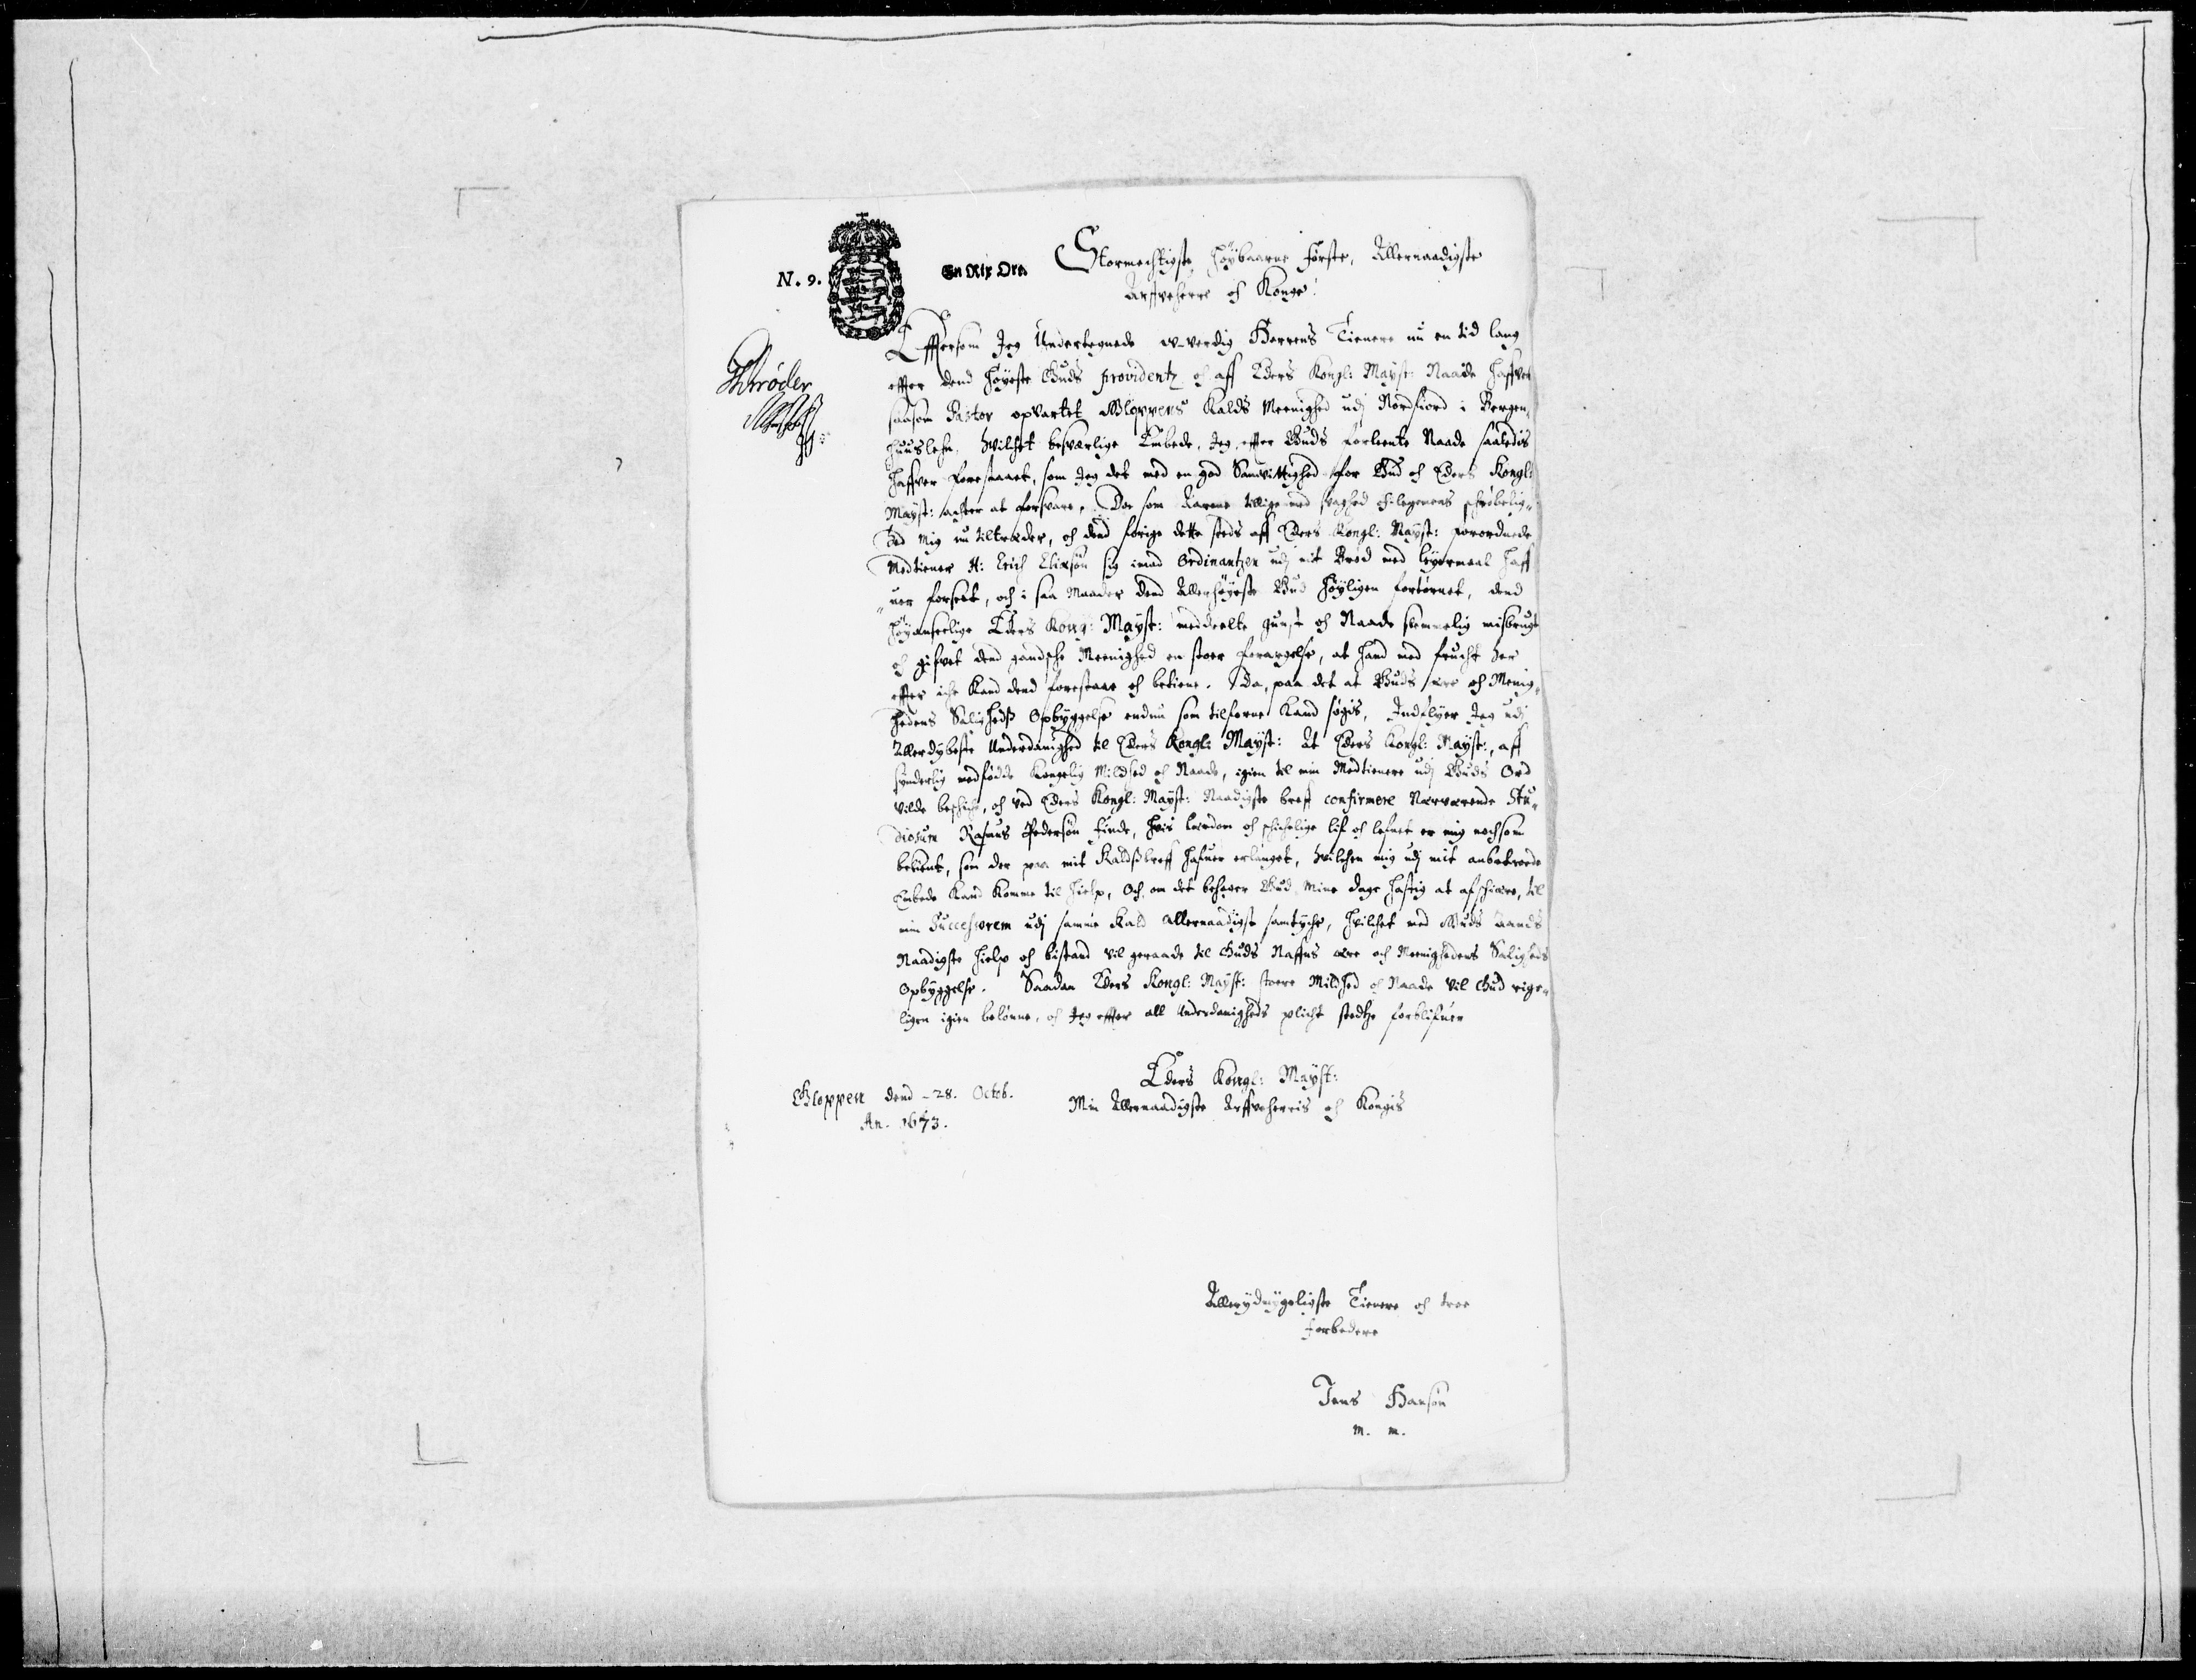 N. 9.
En Rix Ort.
Stormechtigste, Høybaarne Første, Allernaadigste
Arffveherre och Konge!
Schrøder
Efftersom Jeg Undertegnede w-verdig Herrens Tienere nu en tid lang
effter dend høyeste Guds providentz och aff Eders Kongl: Mayst: Naade haffver
saasom Pastor opvartet Gloppens Kalds Meenighed udj Nordfiord i Bergen-
huuslehn, hvilchet besværlige Embede, Jeg, effter Guds forleente Naade saaledis
haffver forestaaet, som Jeg det med en god Samvittighed for Gud och Eders Kongl:
Mayst: achter at forsvare. Der som Aarene tillige med svaghed och legemens schrøbelig-
hed mig nu tiltræder, och dend forige dette steds aff Eders Kongl: Mayst: forordnede
Medtiener H: Erich Eliasøn sig imod Ordinantzen udj it Brød med leyermaal haff
uer forseet, och i saa Maader dend Allerhøyeste Gud høyligen fortørnet, dend
høyanseelige Eders Kong: Mayst: meddeelte gunst och Naade slemmelig misbrugt
och gifvet dend gandsche Meenighed en stoer forargelse, at hand med frucht her
effter iche kand dend forestaae och betiene. Da, paa det at Guds ære och Menig-
hedens Saligheds Opbyggelse endnu som tilforne kand søgis, Indflyer Jeg udj
Allerdybeste Underdanighed til Eders Kongl: Mayst: At Eders Kongl: Mayst:, aff
synderlig medfødde Kongelig Mildhed och Naade, igien til min Medtienere udj Guds Ord
vilde beschiche, och ved Eders Kongl: Mayst: Naadigste breff confirmere Nærværende Stu-
diosum Rasmus Pedersøn Finde, hvis lærdom och schichelige lif och lefnet er mig nochsom
bekient, som der paa mit Kaldsbreff hafuer erlanget, hvilchen mig udj mit anbetroede
Embede kand komme til hielp, Och om det behager Gud mine dage hastig at afschiære, til
min Successorem udj samme Kald allernaadigst samtyche, hvilchet med Guds Aands
Naadigste hielp och bistand vil geraade til Guds Naffns ære och Meenighedens Saligheds
Opbyggelse. Saadan Eders Kongl: Mayst: stoere Mildhed och Naade vil Gud rige-
ligen igien belønne, och Jeg effter all Underdanigheds plicht stedtze forblifuer
Eders Kongl: Mayst:
Min Allernaadigste Arffveherris och Kongis
Gloppen dend 28. Octob.
An. 1673.
Allerydmygeligste Tienere och troe
forbedere
Jens Hansøn
m. m.